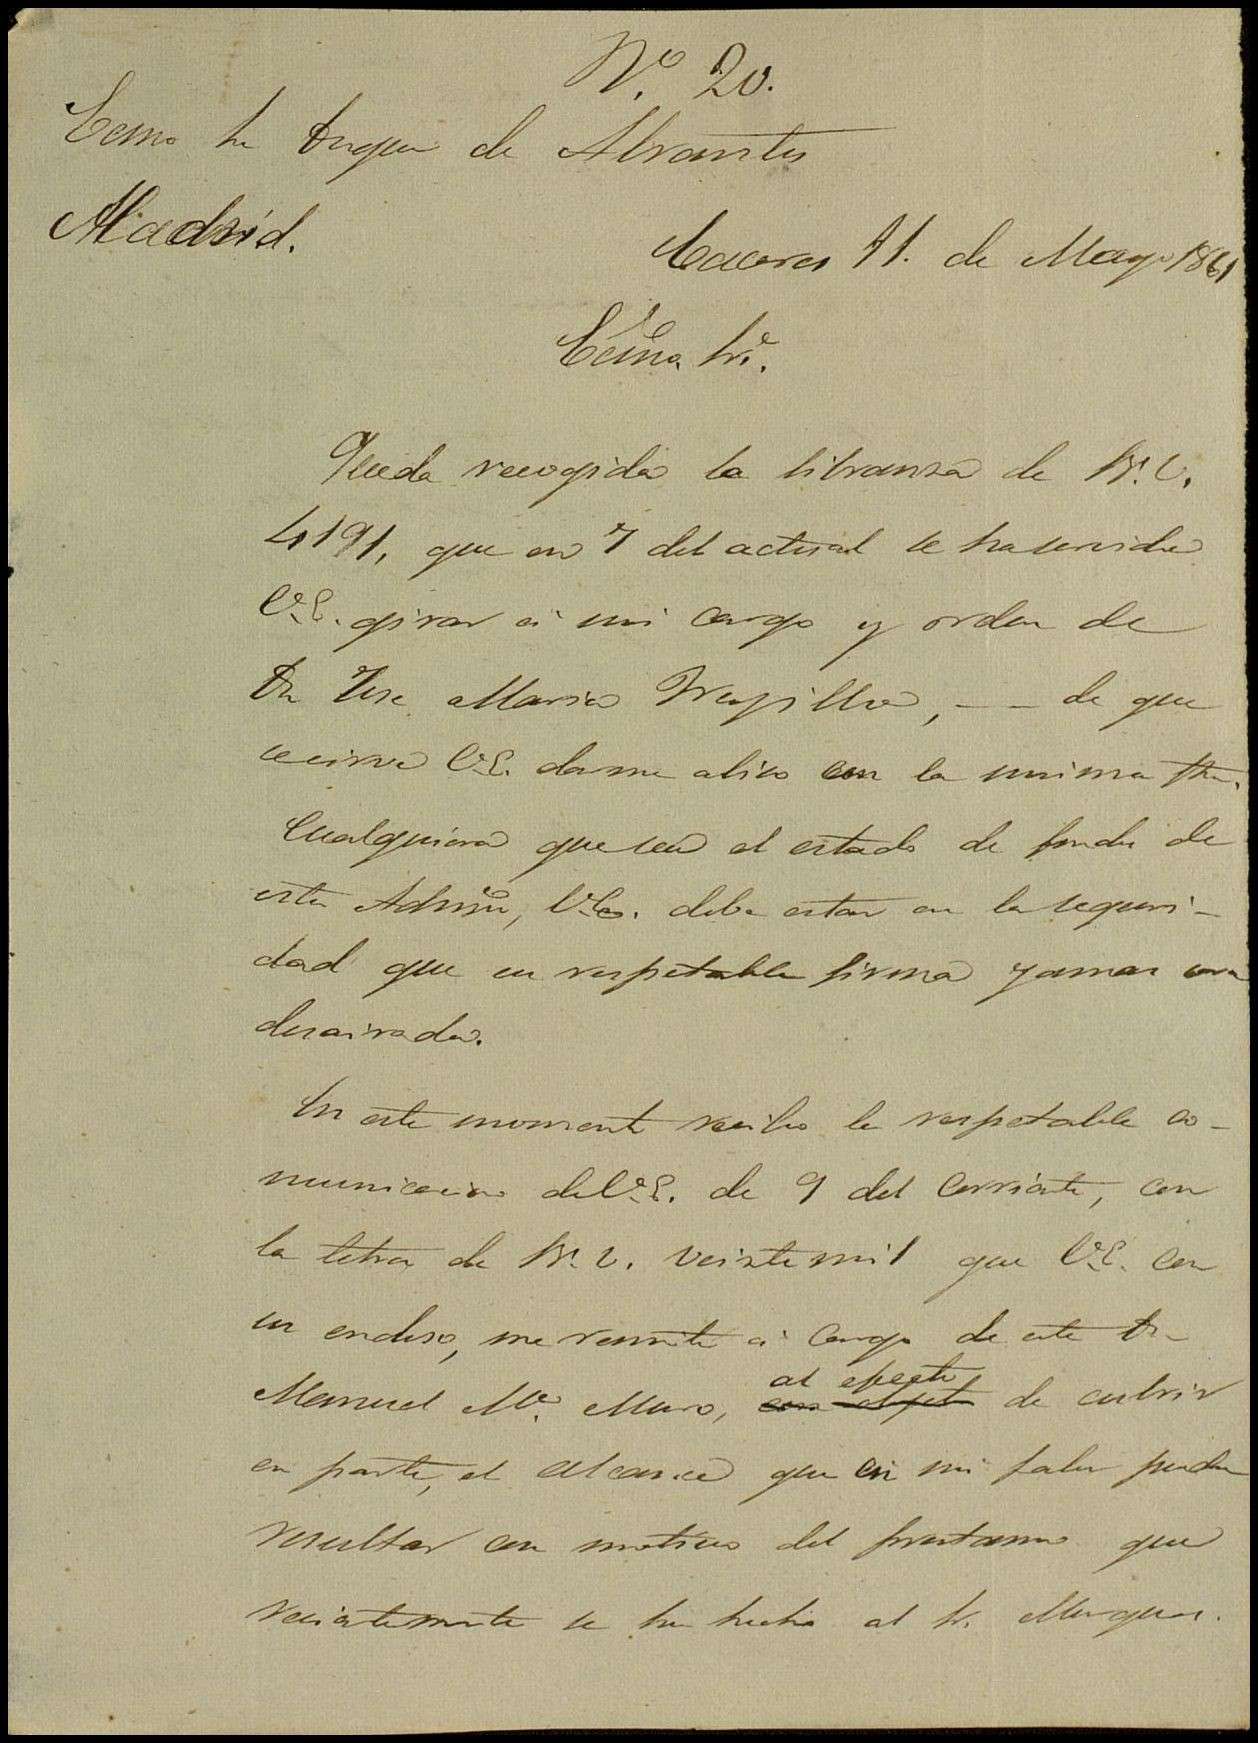 Nº. 20.
Ecsmo Sr Duque de Abrantes
Madrid.
Caceres 11. de Mayo 1861
Ecsmo. Sr.
Queda recogida la libranza de Rs. vn.
4191, que en 7 del actual se ha servido
V.E. girar á mi cargo y orden de
Dn Jose Maria Trujillo, -- de que
se sirve V.E. darme abiso con la misma fha.
Cualquiera que sea el estado de fondos de
esta Admon, V.E. debe estar en la seguri-
dad que su respetable firma jamas sera
desairada.
En este momento recibo la respetable co-
municacion de V.E. de 9 del corriente, con
la letra de Rs. v. veinte mil que V.E. con
su endoso, me remite á cargo de este Dn
Manuel Mª. Muro, con objeto al efecto de cubrir
en parte, el alcance que en mi fabor pueda
resultar con motivo del prestamo que
recientemente se ha hecho al Sr. Marques.